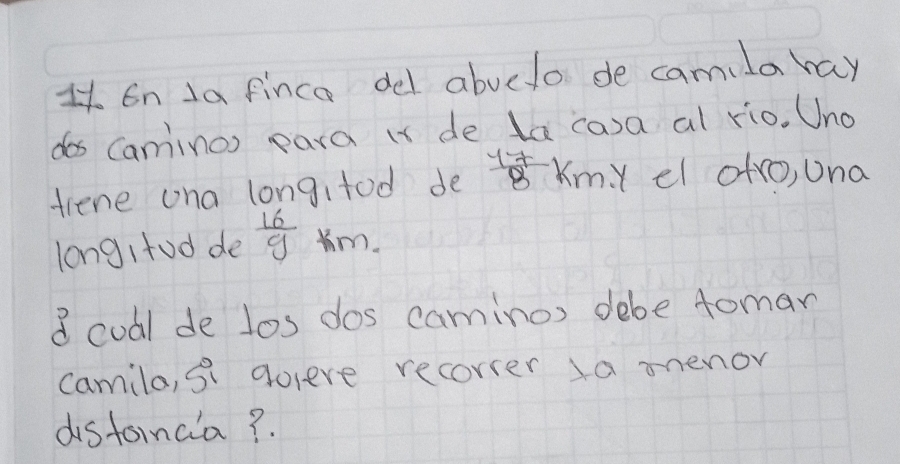 17. En la finca del abuelo de camila hay
dos caminos para ir de la casa al rio. Uno
tiene una longitud de 17/8 Km. Y el otro, Una
longitud de 16/9 Km.
¿ cual de los dos caminos debe tomar
camila, si quiere recorrer la menor
distancia ?.